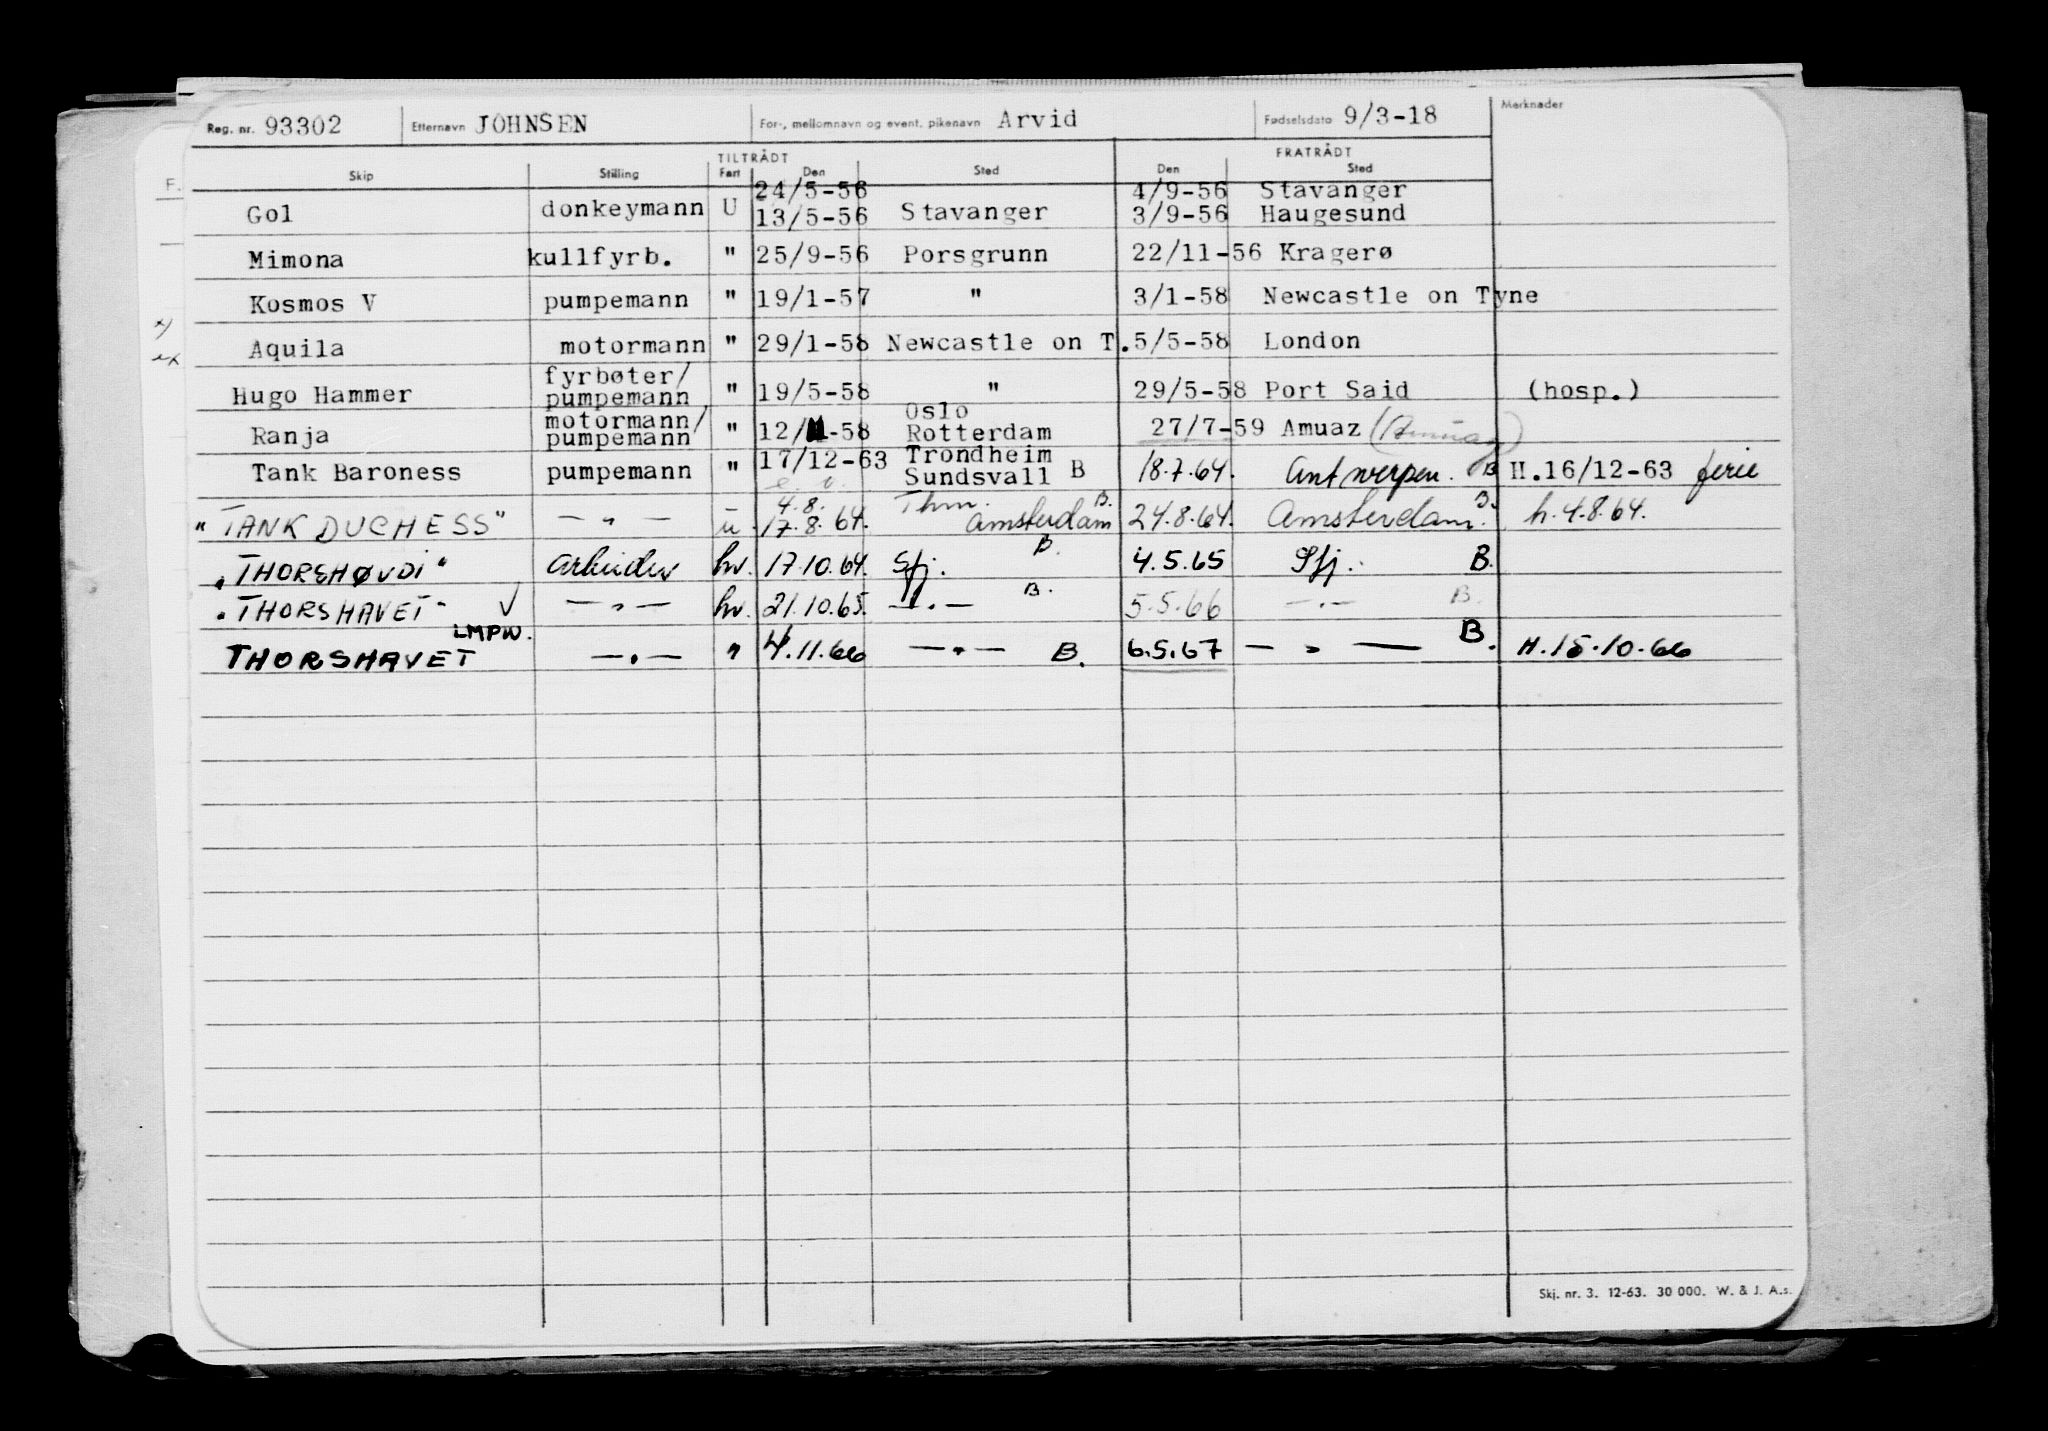 Reg. nr. 93302 Etternavn JOHNSEN For-, mellomnavn og event. pikenavn Arvid Fødselsdato 9/3-18 Merknader
TILTRÅDT FRATRÅDT
Skip Stilling Fart Den Sted Den Sted
24/5-56 4/9-56 Stavanger
Gol donkeymann U 13/5-56 Stavanger 3/9-56 Haugesund
Mimona kullfyrb. " 25/9-56 Porsgrunn 22/11-56 Kragerø
Kosmos V pumpemann " 19/1-57 " 3/1-58 Newcastle on Tyne
Aquila motormann " 29/1-58 Newcastle on T. 5/5-58 London
fyrbøter/
Hugo Hammer pumpemann " 19/5-58 " 29/5-58 Port Said (hosp.)
motormann/ Oslo
Ranja pumpemann " 12/11-58 Rotterdam 27/7-59 Amuaz (Amuay)
17/12-63 Trondheim
Tank Baroness pumpemann " Sundsvall B 18.7.64. Antwerpen. B H.16/12-63 ferie
4.8. Thm. B.
"TANK DUCHESS" — " — u 17.8.64. Amsterdam 24.8.64. Amsterdam. B. h.4.8.64.
"THORSHØVDI" Arbeider hv. 17.10.64. Sfj. B. 4.5.65 Sfj. B.
"THORSHAVET" — " — hv. 21.10.65. — " — B. 5.5.66 — " — B.
LMPW.
THORSHAVET — " — " 4.11.66 — " — B. 6.5.67 — " — B. H.15.10.66
Skj. nr. 3. 12-63. 30 000. W. & J. A.s.
F.